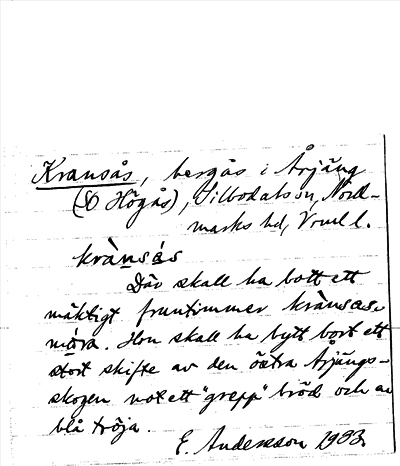 Kransås, bergås i Årjäng
(SO Högås), Silbodals sn, Nord-
marks hd, Vrml l.
krànsås
Där skall ha bott ett
mäktigt fruntimmer krànsås-
móra. Hon skall ha bytt bort ett
stort skifte av den östra Årjängs-
skogen mot ett "grepp" bröd och en
blå tröja.
E. Andersson 1933